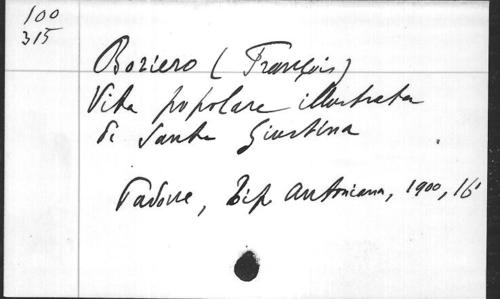 100
315
Boriero (François)
Vita popolare illustrata
di Santa Giustina
Padoue, Tip Antoniana, 1900, 16°